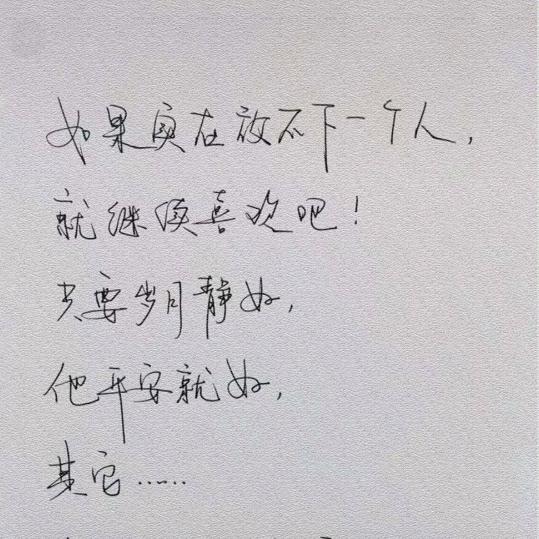 如果实在放不下一个人，
就继续喜欢吧！
只要岁月静好，
他平安就好，
其它……